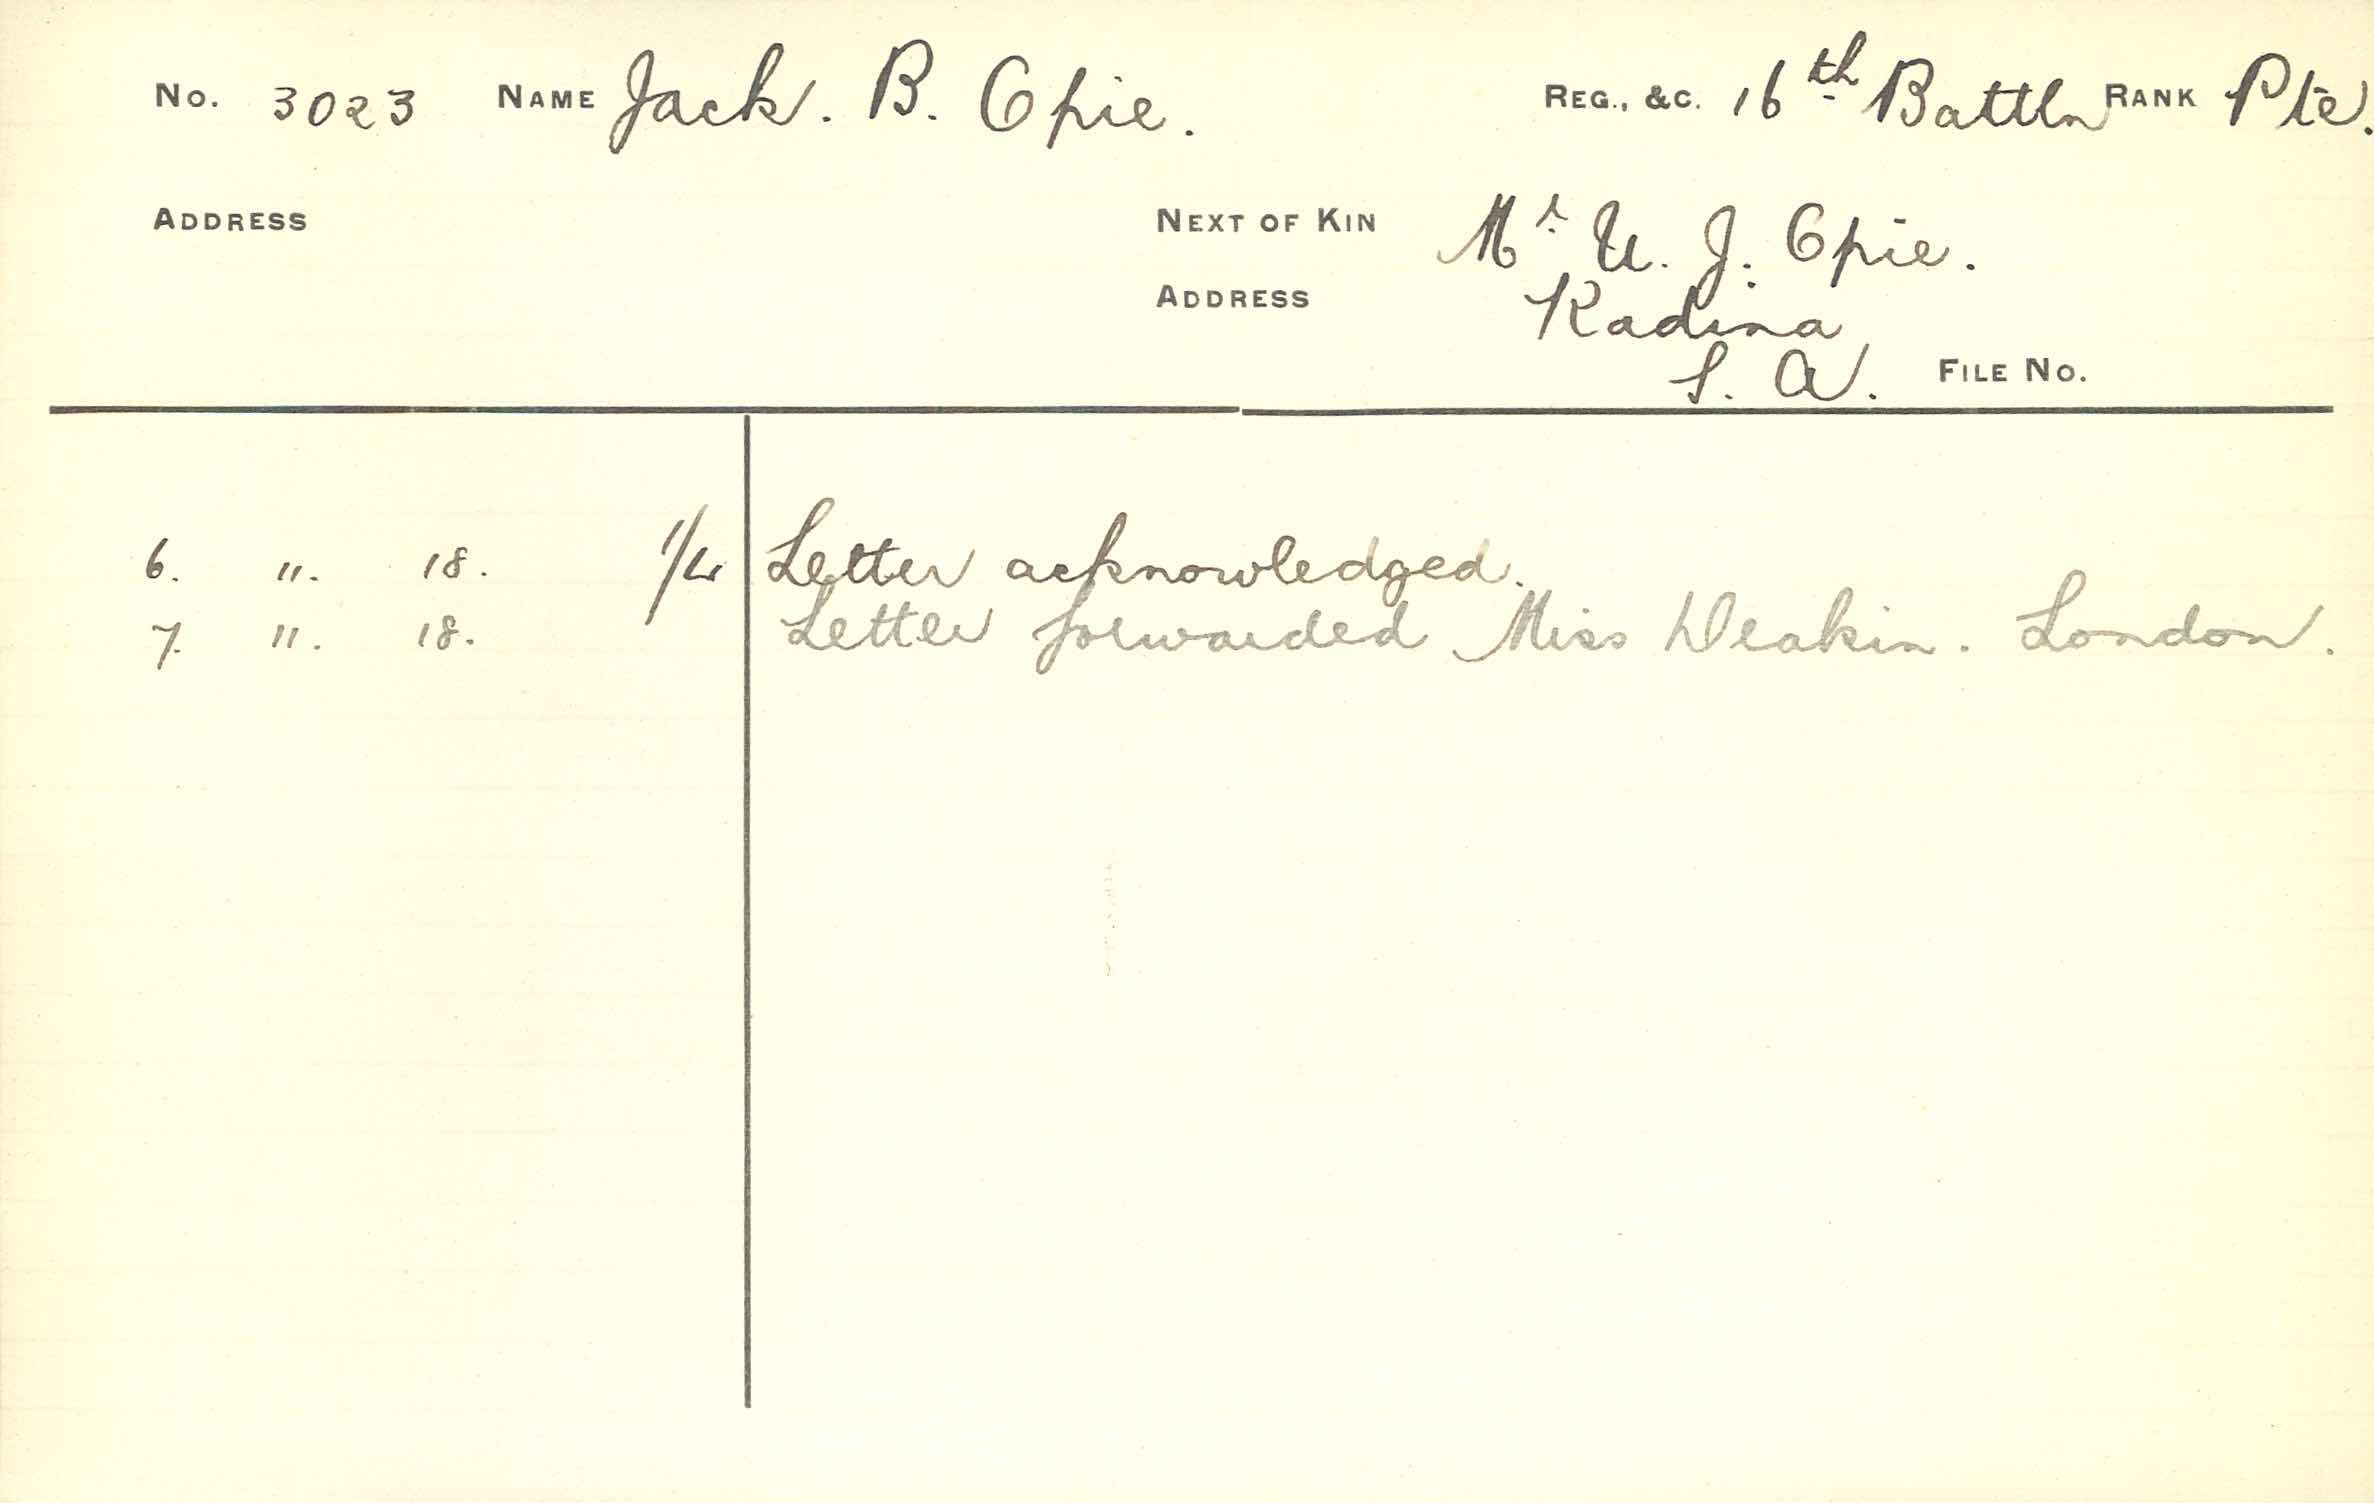 No. 3023 NAME Jack. B. Opie. REG., &C. 16th Battln RANK Pte.
ADDRESS NEXT OF KIN Mr. U. J. Opie.
ADDRESS Kadina
S. A. FILE No.
6. 11. 18. Letter acknowledged.
7. 11. 18. Letter forwarded Miss Deakin. London.